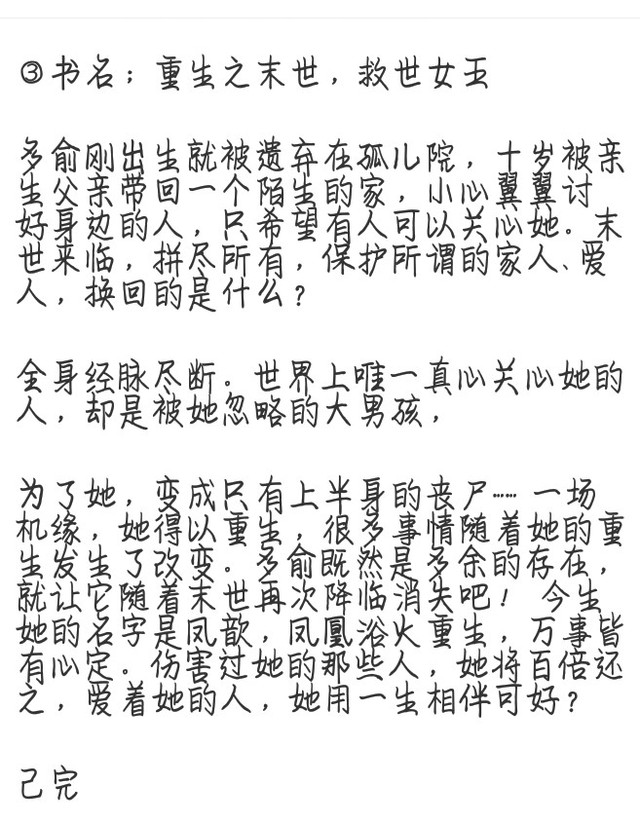 ③书名；重生之末世，救世女王
多俞刚出生就被遗弃在孤儿院，十岁被亲
生父亲带回一个陌生的家，小心翼翼讨
好身边的人，只希望有人可以关心她。末
世来临，拼尽所有，保护所谓的家人、爱
人，换回的是什么？
全身经脉尽断。世界上唯一真心关心她的
人，却是被她忽略的大男孩，
为了她，变成只有上半身的丧尸……一场
机缘，她得以重生，很多事情随着她的重
生发生了改变。多俞既然是多余的存在，
就让它随着末世再次降临消失吧！ 今生
她的名字是凤歆，凤凰浴火重生，万事皆
有心定。伤害过她的那些人，她将百倍还
之，爱着她的人，她用一生相伴可好？
己完